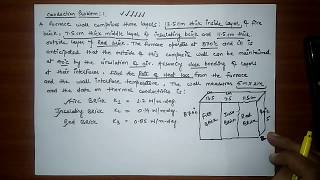 Conduction Problem : 1
A furnace wall comprises three layers: 13.5 cm thick inside layer of fire
brick, 7.5 cm thick middle layer of insulating brick and 11.5 cm thick
outside layer of Red brick. The furnace operates at 870°C and it is
anticipated that the outside of this composite wall can be maintained
at 40°C by the circulation of air. Assuming close bonding of layers
at their interfaces, find the Rate of heat loss from the furnace
and the wall interface temperature. The wall measures 5m x 2m
and the data on thermal conductivities is:
Fire Brick K1 = 1.2 W/m-deg
Insulating Brick K2 = 0.14 W/m-deg
Red Brick K3 = 0.85 W/m-deg
13.5 7.5 11.5
870°C
Fire Brick
Red Brick